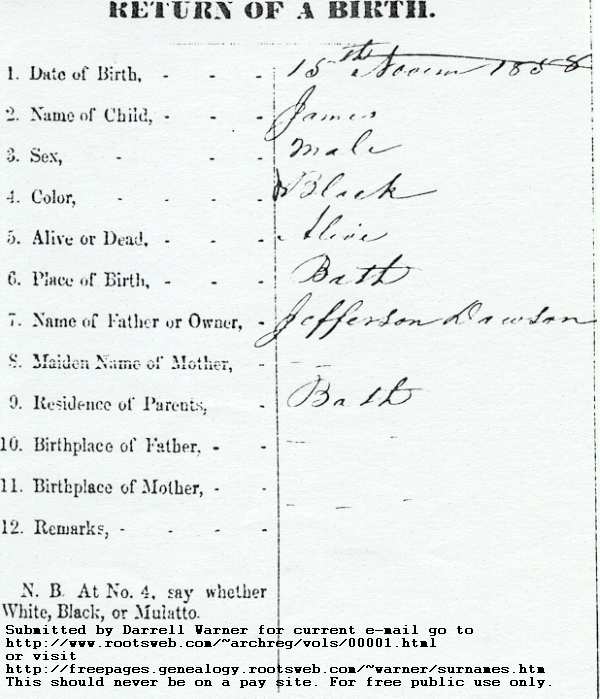 RETURN OF A BIRTH.
1. Date of Birth, - - - 15th Novem 1858
2. Name of Child, - - - James
3. Sex, - - - Male
4. Color, - - - Black
5. Alive or Dead, - - - Alive
6. Place of Birth, - - - Bath
7. Name of Father or Owner, - Jefferson Dawson
8. Maiden Name of Mother, - - -
9. Residence of Parents, - Bath
10. Birthplace of Father, - - - - -
11. Birthplace of Mother, - - - - -
12. Remarks, - - - -
N. B. At No. 4, say whether
White, Black, or Mulatto.
Submitted by Darrell Warner for current e-mail go to
http://www.rootsweb.com/~archreg/vols/00001.html
or visit
http://freepages.genealogy.rootsweb.com/~warner/surnames.htm
This should never be on a pay site. For free public use only.